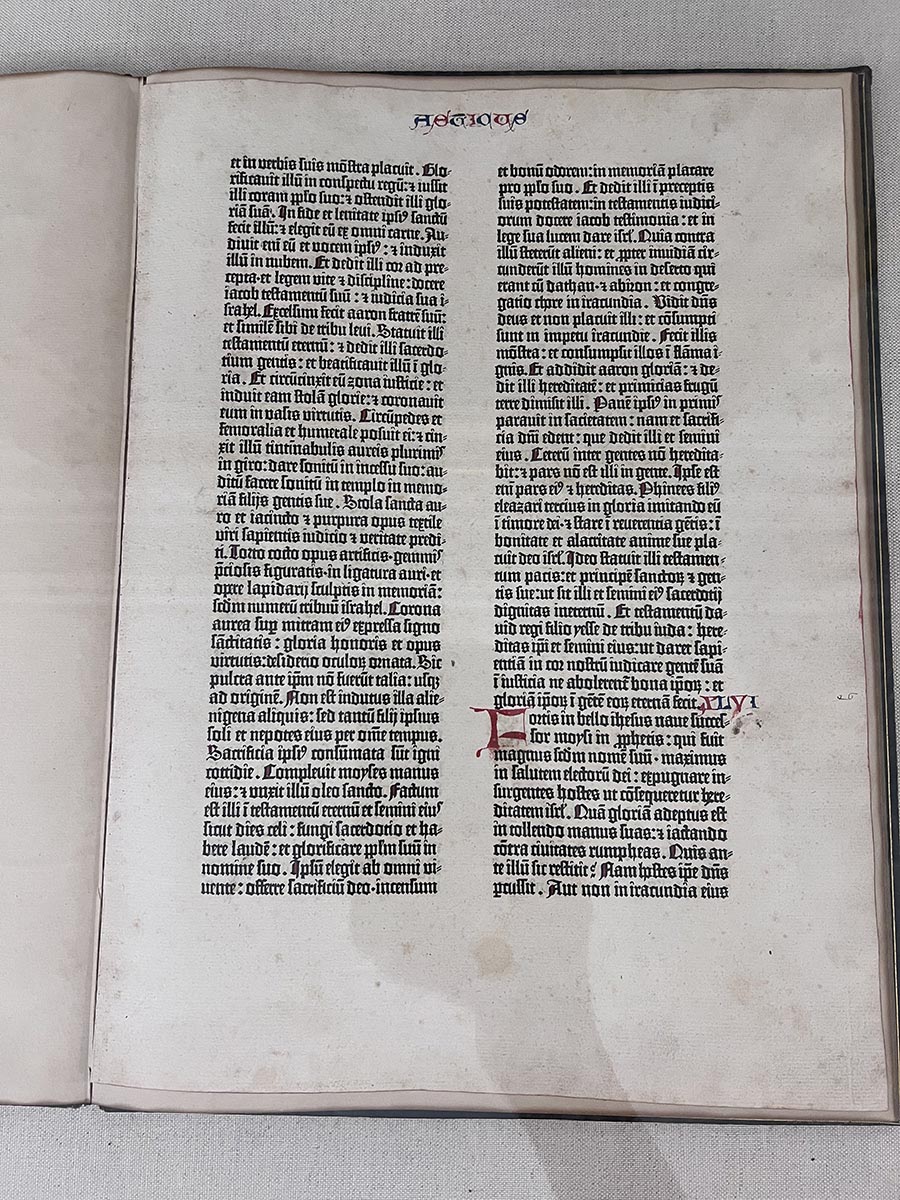 ASTICUS
et in verbis suis mōstra placuit. Glo-
rificauit illū in conspectu regū: ⁊ iussit
illi coram pplo suo: ⁊ ostendit illi glo-
riā suā. In fide et lenitate ipsiꝰ sanctū
fecit illū: ⁊ elegit eū ex omni carne. Au-
diuit eni eū et vocem ipsiꝰ: ⁊ induxit
illū in nubem. Et dedit illi cor ad pre-
cepta· et legem vite ⁊ discipline: docere
iacob testamentū suū: ⁊ iudicia sua i-
srahel. Excelsum fecit aaron fratrē suū:
et similē sibi de tribu leui. Statuit illi
testamentū eternū: ⁊ dedit illi sacerdo-
tium gentis: et beatificauit illū ī glo-
ria. Et circūcinxit eū zona iusticie: et
induit eam stolā glorie: ⁊ coronauit
eum in vasis virtutis. Circūpedes et
femoralia et humerale posuit ei: ⁊ cin-
xit illū tintinabulis aureis plurimꝭ
in giro: dare sonitū in incessu suo: au-
ditū facere sonitū in templo in memo-
riā filijs gentis sue. Stola sancta au-
ro et iacincto ⁊ purpura opus textile
viri sapientis iudicio ⁊ veritate predi-
ti. Torto cocto opus artificis· gemmꝭ
p̄ciosis figuratis· in ligatura auri· et
opere lapidarij sculptis in memoriā:
scdm numerū tribuū israhel. Corona
aurea sup mitram eiꝰ expressa signo
sāctitatis: gloria honoris et opus
virtutis: desiderio oculoꝝ ornata. Sic
pulcra ante ipm nō fuerūt talia: usqꝫ
ad originē. Non est indutus illa alie-
nigena aliquis: sed tantū filij ipsius
soli et nepotes eius per om̄e tempus.
Sacrificia ipsiꝰ consūmata sūt igni
cottidie. Compleuit moyses manus
eius: ⁊ unxit illū oleo sancto. Factum
est illi ī testamentū eternū et semini eiuꝰ
sicut dies celi: fungi sacerdotio et ha-
bere laudē: et glorificare pplm suū in
nomine suo. Ipsū elegit ab omni vi-
uente: offerre sacrificiū deo· incensum
et bonū odorem: in memoriā placare
pro pplo suo. Et dedit illi ī preceptis
suis potestatem: in testamentis iudici-
orum docere iacob testimonia: et in
lege sua lucem dare isrl. Quia contra
illū steterūt alieni: et ꝓpter inuidiā cir-
cunderūt illū homines in deserto qui
erant cū dathan· ⁊ abiron: et congre-
gatio chore in iracundia. Vidit dn̄s
deus et non placuit illi: et cōsumpti
sunt in impetu iracundie. Fecit illis
mōstra: et consumpsit illos ī flāma i-
gnis. Et addidit aaron gloriā: ⁊ de-
dit illi hereditatē: et primicias frugū
terre dimisit illi. Panē ipsiꝰ in primꝭ
parauit in sacietatem: nam et sacrifi-
cia dn̄i edent: que dedit illi et semini
eius. Ceterū inter gentes nō heredita-
bit: ⁊ pars nō est illi in gente. Ipse est
eni pars eiꝰ ⁊ hereditas. Phinees filiꝰ
eleazari tercius in gloria imitando eū
ī timore dei· ⁊ stare ī reuerentia gētis: ī
bonitate et alacritate anime sue pla-
cuit deo isrl. Ideo statuit illi testamen-
tum pacis: et principē sanctoꝝ ⁊ gen-
tis sue: ut sit illi et semini eiꝰ sacerdotij
dignitas in eternū. Et testamentū da-
uid regi filio yesse de tribu iuda: here-
ditas ipi et semini eius: ut daret sapi-
entiā in cor nostrū iudicare gentē suā
ī iusticia ne abolerent bona ipoꝝ: et
gloriā ipoꝝ ī gētē eoꝝ eternā fecit. XLVI
Fortis in bello ihesus naue succes-
sor moysi in ꝓphetis: qui fuit
magnus scdm nomē suū· maximus
in salutem electorū dei: expugnare in-
surgentes hostes ut cōsequeretur here-
ditatem isrl. Quā gloriā adeptus est
in tollendo manus suas: ⁊ iactando
cōtra ciuitates rumpheas. Quis an-
te illū sic restitit? Nam hostes ipe dn̄s
ꝑcussit. Aut non in iracundia eius